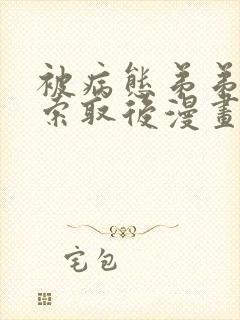 被病態弟弟
索取後漫畫
宅包